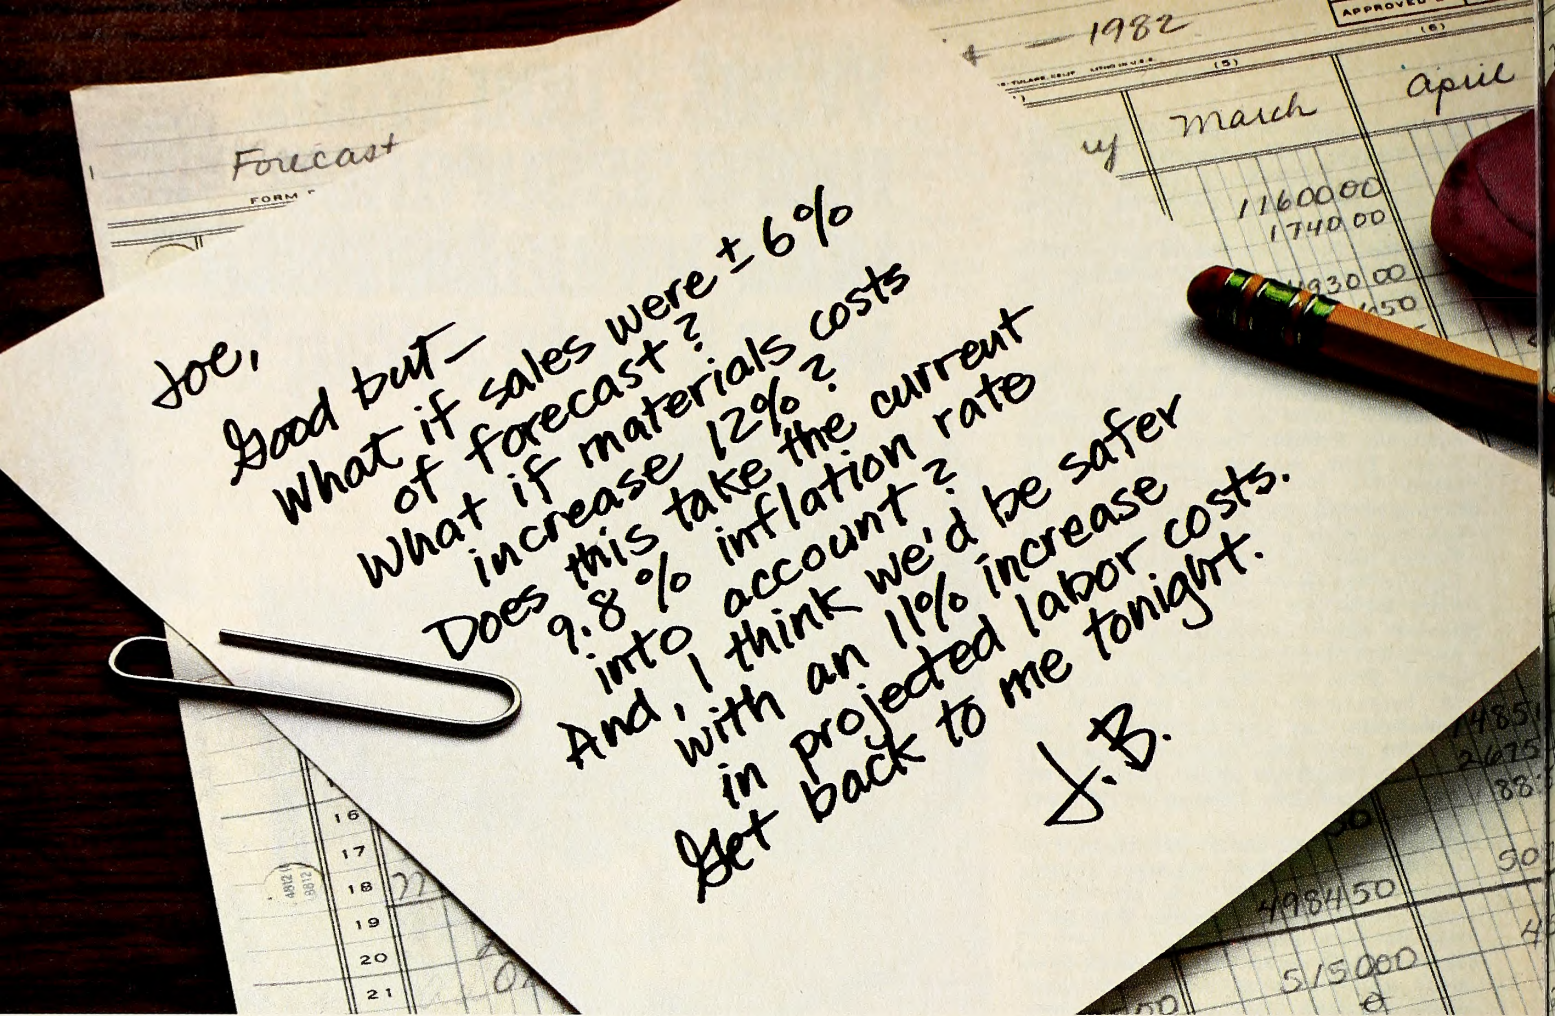 Forecast
FORM
1982
APPROVED
LITHO IN U.S.A.
(5)
(6)
March
April
11600 00
1740.00
4930.00
Joe,
Good but—
What if sales were ± 6%
of forecast?
What if materials costs
increase 12%?
Does this take the current
9.8% inflation rate
into account?
And, I think we'd be safer
with an 11% increase
in projected labor costs.
Get back to me tonight.
J.B.
16
17
18
19
20
21
498450
515000